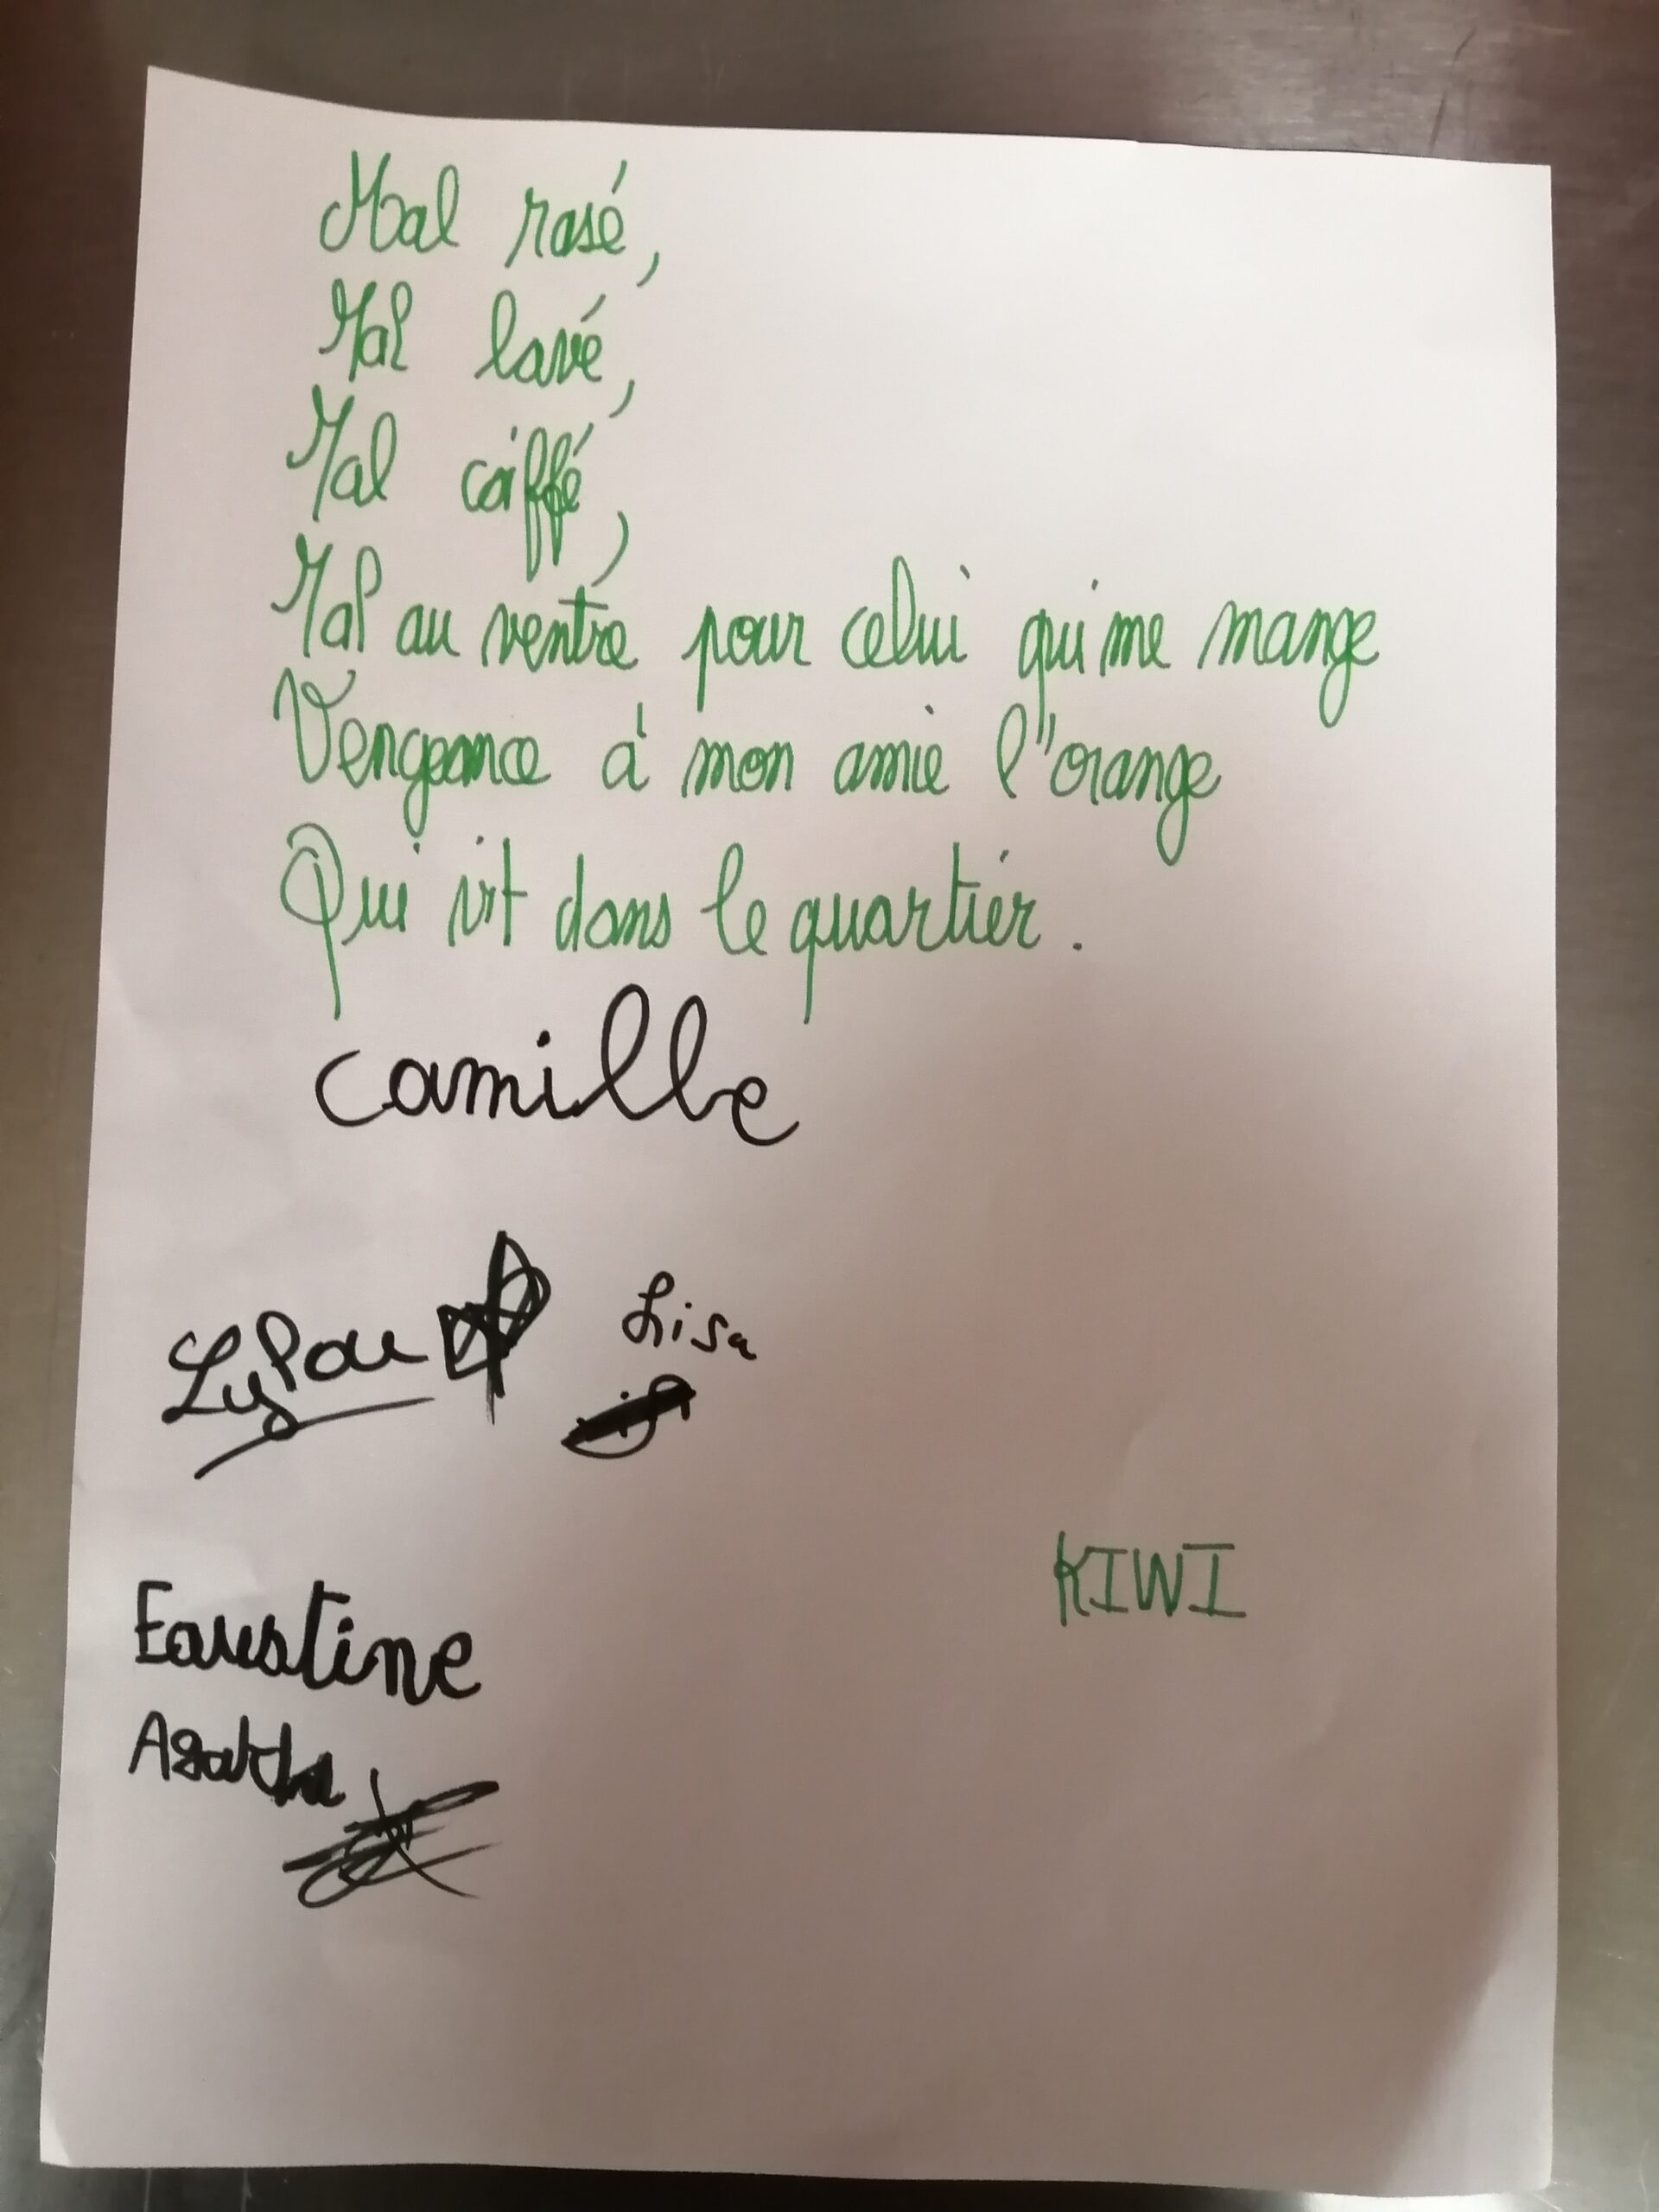 Mal rasé,
Mal lavé,
Mal coiffé,
Mal au ventre pour celui qui me mange
Vengeance à mon amie l'orange
Qui vit dans le quartier.
Camille
Lylou
Lisa
KIWI
Faustine
Agathe